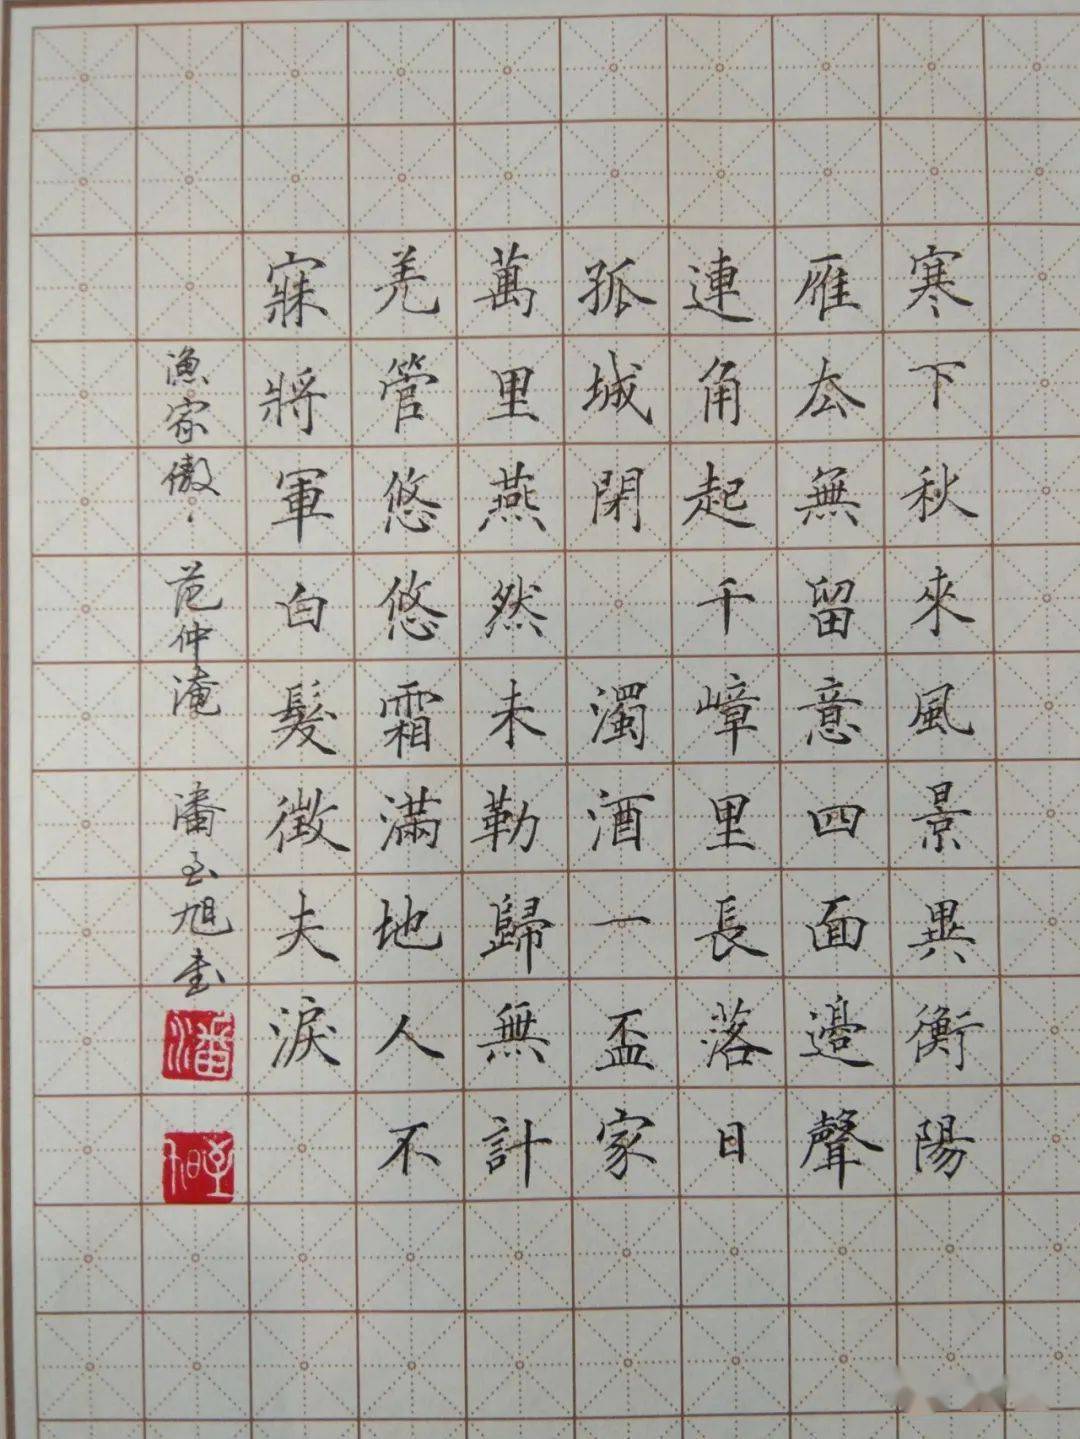 寒下秋來風景異衡陽
雁厺無留意四面邊聲
連角起千嶂里長落日
孤城閉 濁酒一盃家
萬里燕然未勒歸無計
羌管悠悠霜滿地人不
寐將軍白髮徴夫淚
漁家傲·范仲淹 潘玉旭書
潘